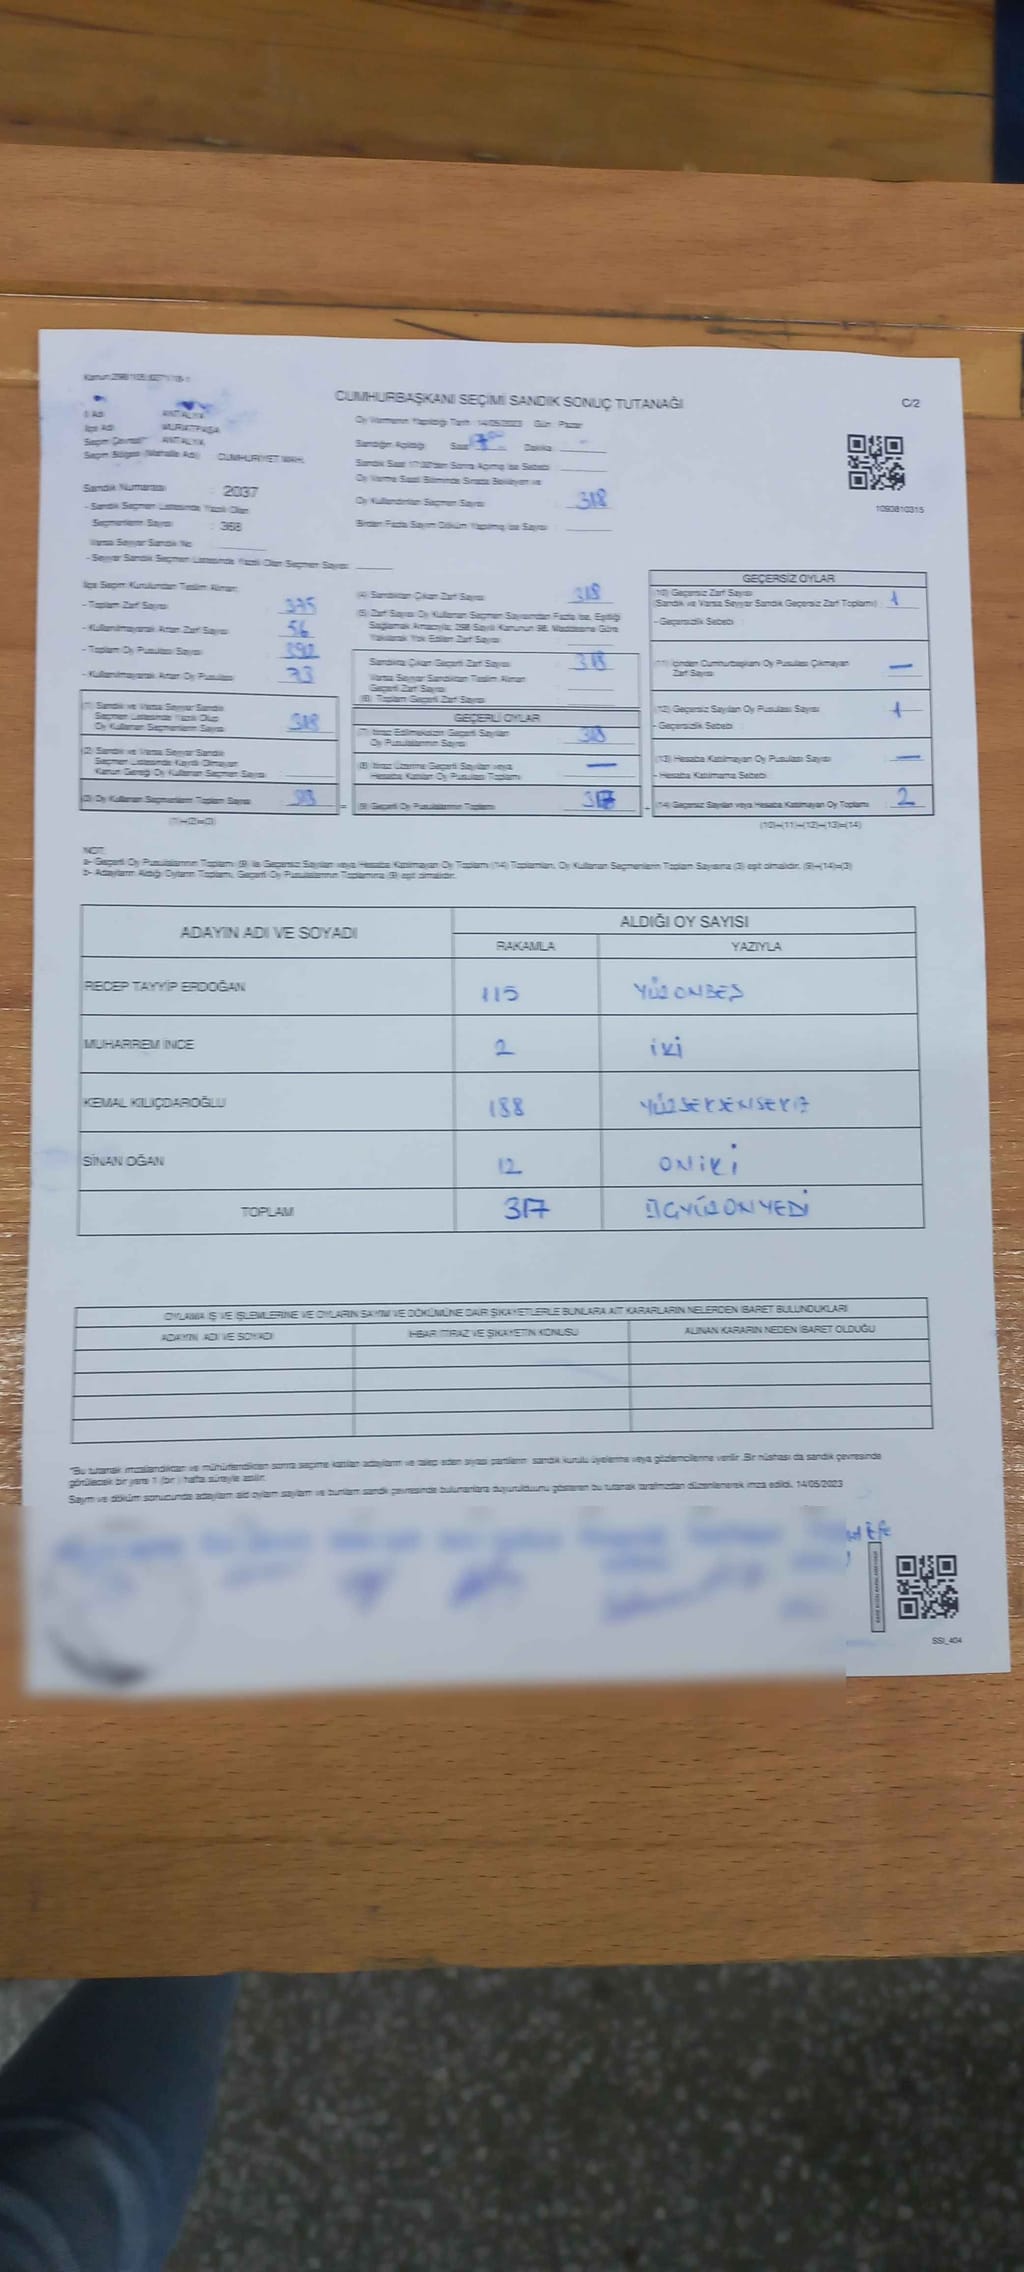 C/2
CUMHURBAŞKANI SEÇİMİ SANDIK SONUÇ TUTANAĞI
Oy Vermenin Yapıldığı Tarih : 14/05/2023 Gün : Pazar
İl Adı ANTALYA
İlçe Adı MURATPAŞA
Seçim Çevresi ANTALYA
Seçim Bölgesi (Mahalle Adı) CUMHURİYET MAH.
Sandık Numarası : 2037
- Sandık Seçmen Listesinde Yazılı Olan
Seçmenlerin Sayısı : 368
Varsa Seyyar Sandık No
- Seyyar Sandık Seçmen Listesinde Yazılı Olan Seçmen Sayısı
Sandığın Açıldığı Saat Dakika
Sandık Saat 17:00'den Sonra Açılmış İse Sebebi
Oy Verme Saati Bitiminde Sırada Bekleyen ve
Oy Kullandırılan Seçmen Sayısı 318
Birden Fazla Sayım Döküm Yapılmış İse Sayısı
1093810315
İlçe Seçim Kurulundan Teslim Alınan
- Toplam Zarf Sayısı 375
- Kullanılmayarak Artan Zarf Sayısı 56
- Toplam Oy Pusulası Sayısı
- Kullanılmayarak Artan Oy Pusulası 73
(1) Sandık ve Varsa Seyyar Sandık
Seçmen Listesinde Yazılı Olup
Oy Kullanan Seçmenlerin Sayısı
(2) Sandık ve Varsa Seyyar Sandık
Seçmen Listesinde Kayıtlı Olmayan
Kanun Gereği Oy Kullanan Seçmen Sayısı
(3) Oy Kullanan Seçmenlerin Toplam Sayısı
(1)+(2)=(3)
(4) Sandıktan Çıkan Zarf Sayısı 318
(5) Zarf Sayısı Oy Kullanan Seçmen Sayısından Fazla İse, Eşitliği
Sağlamak Amacıyla; 298 Sayılı Kanunun 98. Maddesine Göre
Yakılarak Yok Edilen Zarf Sayısı
Sandıkta Çıkan Geçerli Zarf Sayısı 318
Varsa Seyyar Sandıktan Teslim Alınan
Geçerli Zarf Sayısı
(6) Toplam Geçerli Zarf Sayısı
GEÇERLİ OYLAR
(7) İtiraz Edilmeksizin Geçerli Sayılan
Oy Pusulalarının Sayısı 318
(8) İtiraz Üzerine Geçerli Sayılan veya
Hesaba Katılan Oy Pusulası Toplamı —
(9) Geçerli Oy Pusulalarının Toplamı 317
GEÇERSİZ OYLAR
(10) Geçersiz Zarf Sayısı
(Sandık ve Varsa Seyyar Sandık Geçersiz Zarf Toplamı) 1
- Geçersizlik Sebebi
(11) İçinden Cumhurbaşkanı Oy Pusulası Çıkmayan
Zarf Sayısı —
(12) Geçersiz Sayılan Oy Pusulası Sayısı 1
- Geçersizlik Sebebi
(13) Hesaba Katılmayan Oy Pusulası Sayısı —
- Hesaba Katılmama Sebebi
(14) Geçersiz Sayılan veya Hesaba Katılmayan Oy Toplamı 2
(10)+(11)+(12)+(13)=(14)
NOT:
a- Geçerli Oy Pusulalarının Toplamı (9) ile Geçersiz Sayılan veya Hesaba Katılmayan Oy Toplamı (14) Toplamları, Oy Kullanan Seçmenlerin Toplam Sayısına (3) eşit olmalıdır. (9)+(14)=(3)
b- Adayların Aldığı Oyların Toplamı, Geçerli Oy Pusulalarının Toplamına (9) eşit olmalıdır.
ADAYIN ADI VE SOYADI ALDIĞI OY SAYISI
RAKAMLA YAZIYLA
RECEP TAYYİP ERDOĞAN 115 YÜZONBEŞ
MUHARREM İNCE 2 İKİ
KEMAL KILIÇDAROĞLU 188 YÜZSEKSENSEKİZ
SİNAN OĞAN 12 ONİKİ
TOPLAM 317 ÜÇYÜZONYEDİ
OYLAMA İŞ VE İŞLEMLERİNE VE OYLARIN SAYIM VE DÖKÜMÜNE DAİR ŞİKAYETLERLE BUNLARA AİT KARARLARIN NELERDEN İBARET BULUNDUKLARI
ADAYIN ADI VE SOYADI İHBAR İTİRAZ VE ŞİKAYETİN KONUSU ALINAN KARARIN NEDEN İBARET OLDUĞU
*Bu tutanak imzalandıktan ve mühürlendikten sonra seçime katılan adayların ve talep eden siyasi partilerin sandık kurulu üyelerine veya gözlemcilerine verilir. Bir nüshası da sandık çevresinde
görülecek bir yere 1 (bir) hafta süreyle asılır.
Sayım ve döküm sonucunda adayların aldığı oyların sayıları ve bunların sandık çevresinde bulunanlara duyurulduğunu gösteren bu tutanak tarafımızdan düzenlenerek imza edildi. 14/05/2023
SSI_404